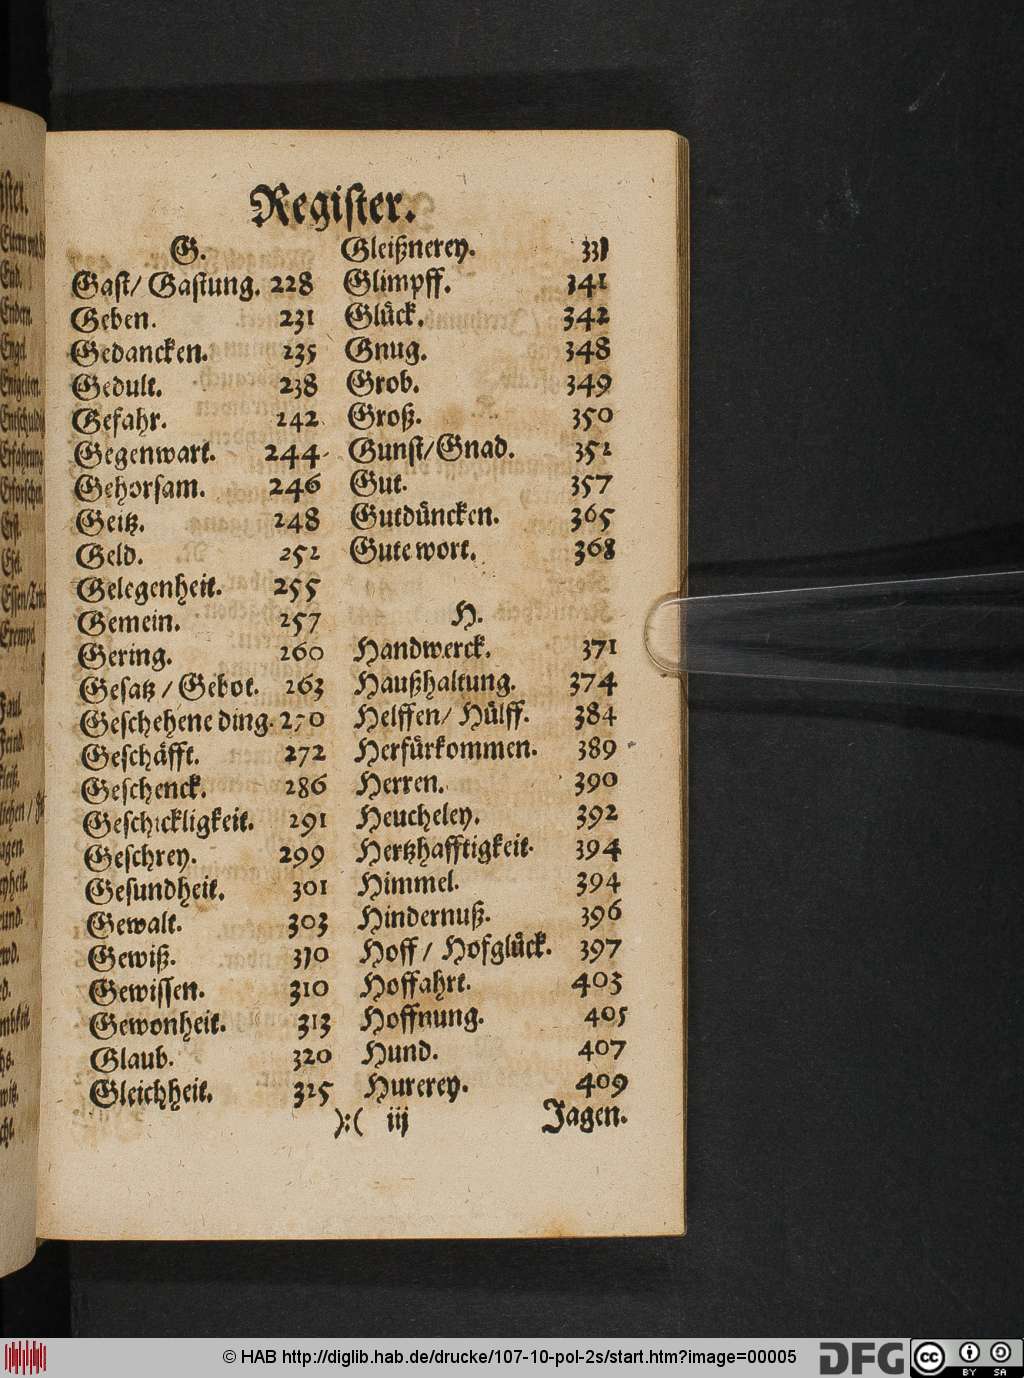 Register.
G.
Gast/ Gastung. 228
Geben. 231
Gedancken. 235
Gedult. 238
Gefahr. 242
Gegenwart. 244
Gehorsam. 246
Geitz. 248
Geld. 252
Gelegenheit. 255
Gemein. 257
Gering. 260
Gesatz / Gebot. 263
Geschehene ding. 270
Geschäfft. 272
Geschenck. 286
Geschickligkeit. 291
Geschrey. 299
Gesundheit. 301
Gewalt. 303
Gewiß. 310
Gewissen. 310
Gewonheit. 313
Glaub. 320
Gleichheit. 325
Gleißnerey. 331
Glimpff. 341
Glück. 342
Gnug. 348
Grob. 349
Groß. 350
Gunst/Gnad. 351
Gut. 357
Gutdüncken. 365
Gute wort. 368
H.
Handwerck. 371
Haußhaltung. 374
Helffen/ Hülff. 384
Herfürkommen. 389
Herren. 390
Heucheley. 392
Hertzhafftigkeit. 394
Himmel. 394
Hindernuß. 396
Hoff / Hofglück. 397
Hoffahrt. 403
Hoffnung. 405
Hund. 407
Hurerey. 409
):( iij
Jagen.
© HAB http://diglib.hab.de/drucke/107-10-pol-2s/start.htm?image=00005
DFG
cc BY SA